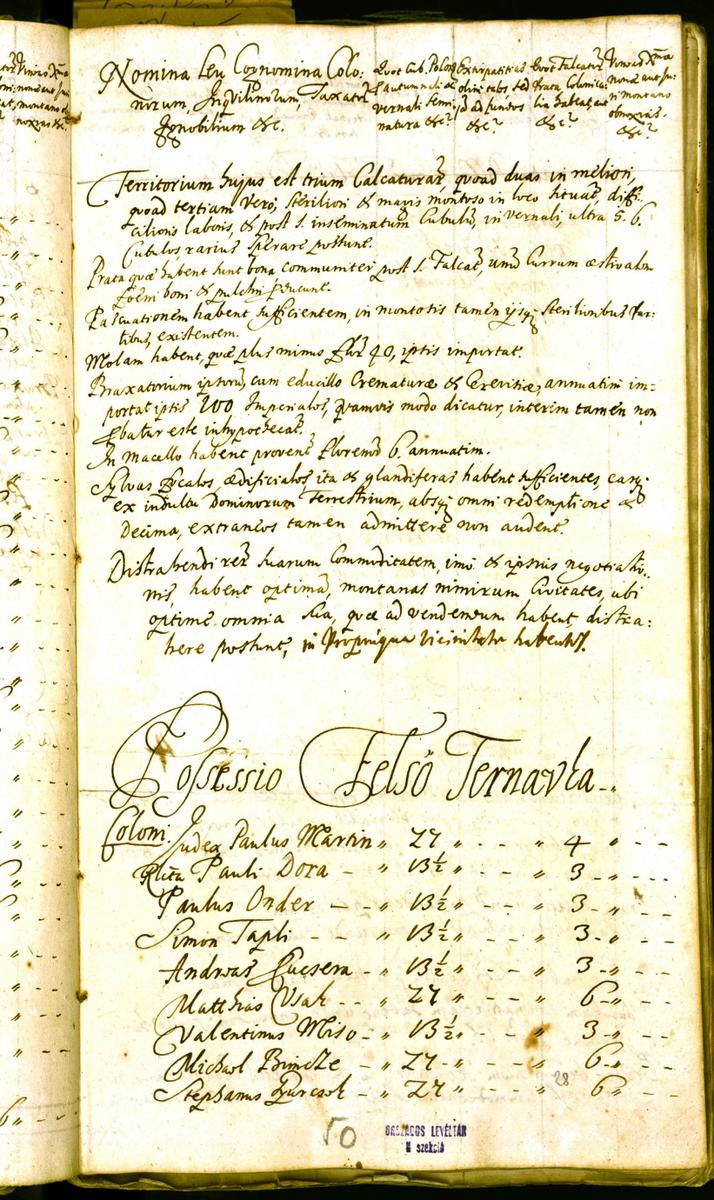 Nomina seu Cognomina Colo:
norum, Inquilinorum, Taxator
Ignobilium &c.
Quot Cub. Poson
Autumnali et
vernali semi
natura &c?
Extirpatitias
olim
ad fundos
&c?
Quot Falcator
Prata Colonica
&c?
Vineas
nonae aut
montano
obnoxias.
&c?
Territorium hujus est trium Calcaturar, quoad duas in meliori,
quoad tertiam vero, steriliori et magis montoso in loco situat, diffi-
cilioris laboris, et post 1. inseminatum Cubulum, in vernali, ultra 5. 6.
Cubulos rarius sperare possunt.
Prata quae habent sunt bona communiter post 1. Falcat, unum Currum aestivalem
foeni boni et pulchri
Pascuationem habent sufficientem, in montosis tamen ijsq sterilioribus Par-
tibus, existentem.
Molam habent, quae plus minus flor 40, ipsis importat.
Braxatorium ipsorum, cum educillo Crematurae et Cerevisiae, annuatim im-
portat ipsis 200 Imperiales, quamvis modo dicatur, interim tamen non
est inhypothecat.
In macello habent provent florenos 6. annuatim.
Sylvas focales, aedificiales, ita et glandiferas habent sufficientes, easq
ex indultu Dominorum Terrestrium, absq omni redemptione ac
Decima, extraneos tamen admittere non audent.
Distrahendi rer suarum Commoditatem, imo et ipsius negotiatio-
nis habent optima, montanas nimirum Civitates, ubi
optime omnia sua, quae ad vendendum habent, distra:
here possunt, in propinqua vicinitate habentes.
Possessio Felső Ternavka
Coloni. Judex Paulus Martin " 27 " - - " 4 " - -
Rlta Pauli Dora - " 13½ " - - " 3 - " - - -
Paulus Onder - - " 13½ " - - " 3 - " - -
Simon Tapli - - " 13½ " - - " 3 - " - -
Andreas Kucsera - " 13½ " - - " 3 - " - -
Matthias Vsak - - " 27 " - - " 6 - " - -
Valentinus Miso - " 13½ " - - " 3 - " - -
Michael Bincze - " 27 - " - - " 6 - " - -
Stephanus Gurcsek - " 27 " - - " 6 " - -
28
50
ORSZÁGOS LEVÉLTÁR
N szekció